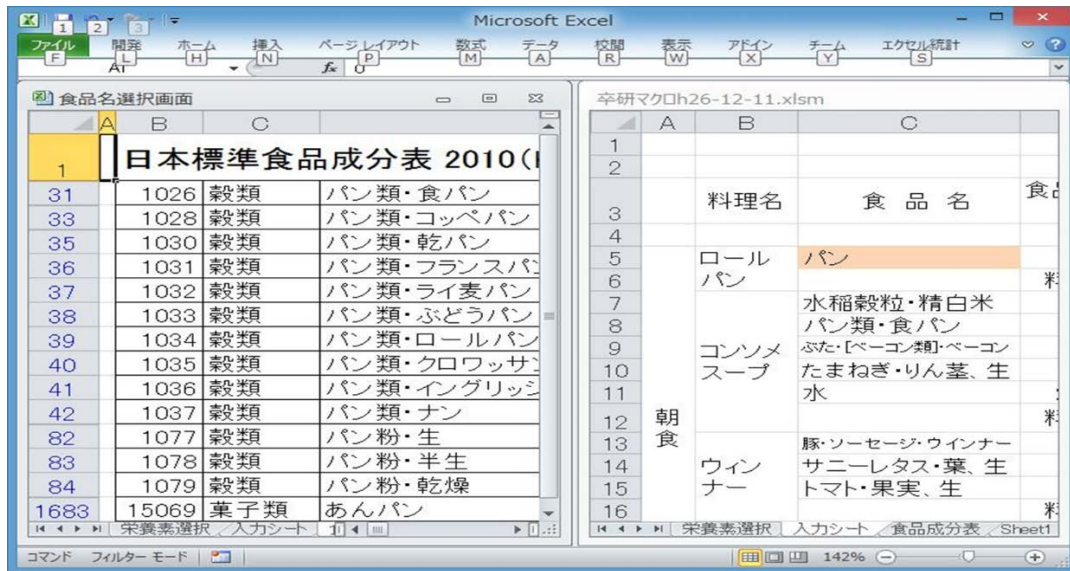 Microsoft Excel
1 2 3
ファイル 開発 ホーム 挿入 ページ レイアウト 数式 データ 校閲 表示 アドイン チーム エクセル統計
F L H N P M A R W X Y S
A1 fx 0
食品名選択画面
A B C
1 日本標準食品成分表 2010(
31 1026 穀類 パン類・食パン
33 1028 穀類 パン類・コッペパン
35 1030 穀類 パン類・乾パン
36 1031 穀類 パン類・フランスパ
37 1032 穀類 パン類・ライ麦パン
38 1033 穀類 パン類・ぶどうパン
39 1034 穀類 パン類・ロールパン
40 1035 穀類 パン類・クロワッサ
41 1036 穀類 パン類・イングリッシ
42 1037 穀類 パン類・ナン
82 1077 穀類 パン粉・生
83 1078 穀類 パン粉・半生
84 1079 穀類 パン粉・乾燥
1683 15069 菓子類 あんパン
栄養素選択 入力シート
卒研マクロh26-12-11.xlsm
A B C
1
2
3 料理名 食 品 名 食
4
5 ロール パン
6 パン
7 水稲穀粒・精白米
8 パン類・食パン
9 コンソメ ぶた・[ベーコン類]・ベーコン
10 スープ たまねぎ・りん茎、生
11 水
12 朝
13 食 豚・ソーセージ・ウインナー
14 ウィン サニーレタス・葉、生
15 ナー トマト・果実、生
16
栄養素選択 入力シート 食品成分表 Sheet1
コマンド フィルター モード 142%